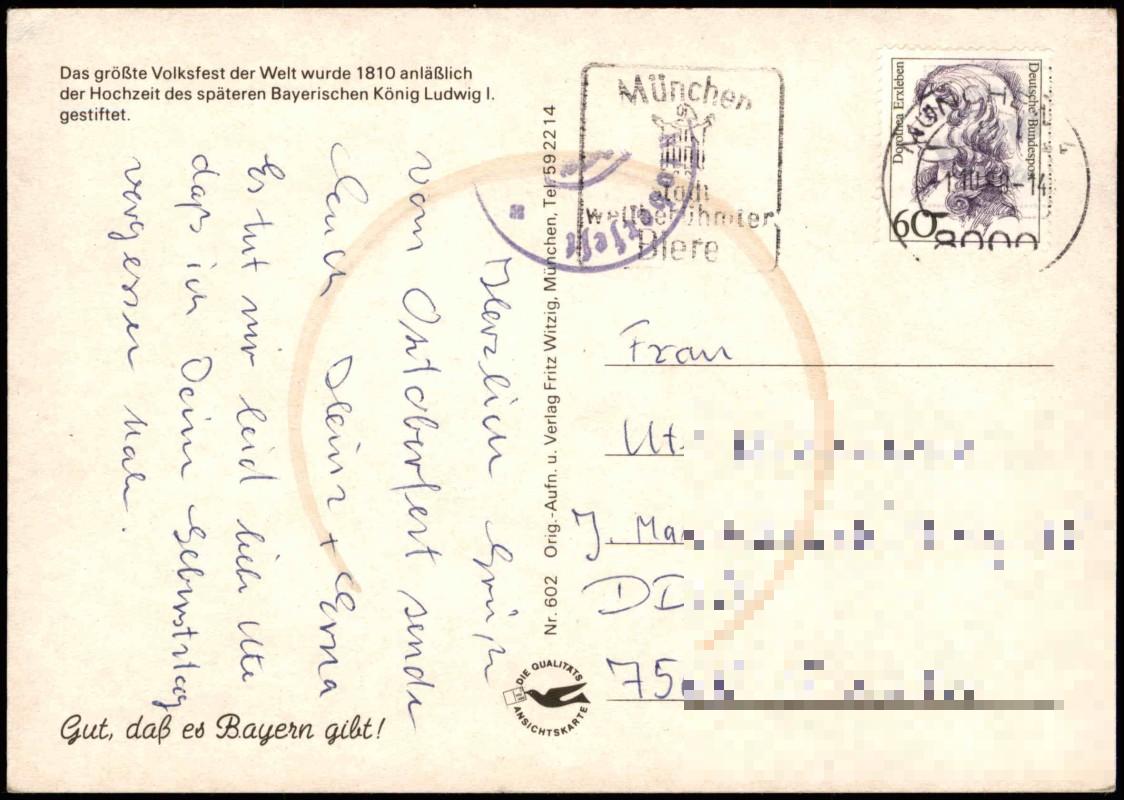 Das größte Volksfest der Welt wurde 1810 anläßlich
der Hochzeit des späteren Bayerischen König Ludwig I.
gestiftet.
Herzliche Grüße
vom Oktoberfest sende
Euch Heinz + Erna
Es tut mir leid liebe Ute
daß ich Deinen Geburtstag
vergessen habe.
Gut, daß es Bayern gibt!
Nr. 602 Orig.-Aufn. u. Verlag Fritz Witzig, München, Tel. 592214
DIE QUALITÄTS
ANSICHTSKARTE
München
Stadt
weltberühmter
Biere
Dorothea Erxleben
Deutsche Bundespost
60
8000
Frau
Ut
J. Ma
DI
75